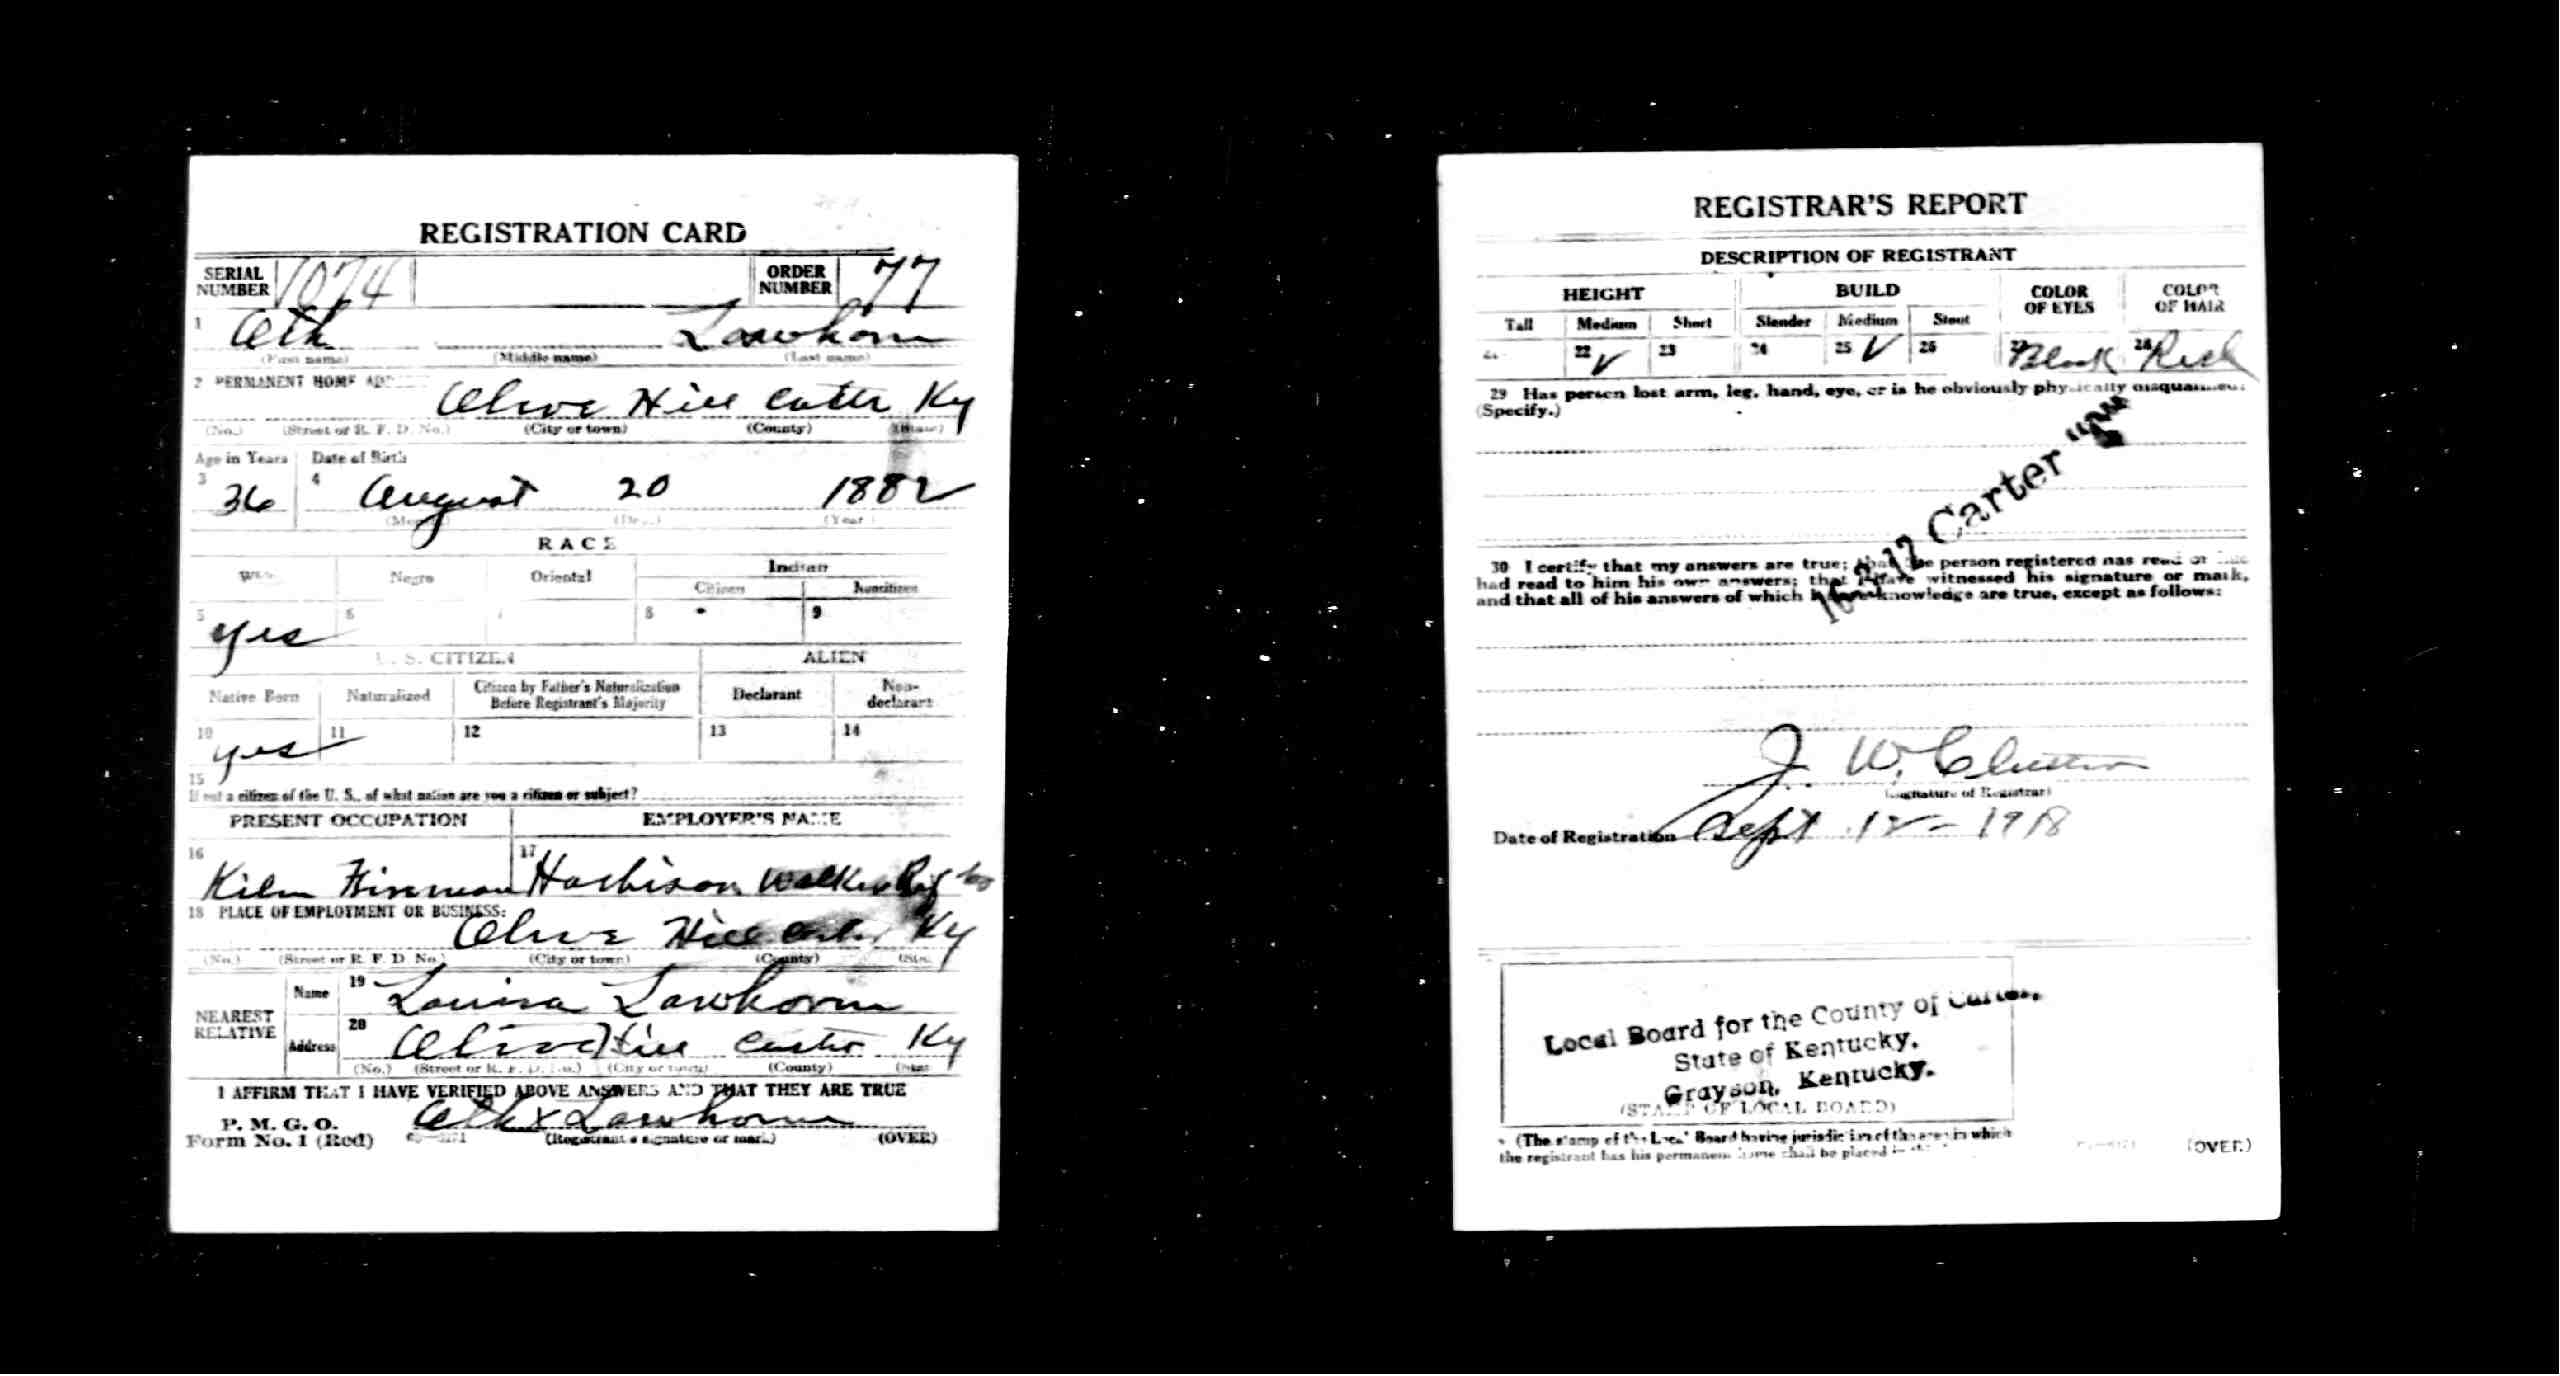 REGISTRATION CARD
SERIAL NUMBER 1074 ORDER NUMBER 77
1 Oth Lawhorn
(First name) (Middle name) (Last name)
2 PERMANENT HOME
Olive Hill Carter Ky
(No.) (Street or R. F. D. No.) (City or town) (County) (State)
Age in Years Date of Birth
3 36 4 August 20 1882
(Year)
RACE
Negro Oriental Indian
Citizen Noncitizen
5 yes 6 7 8 9
U. S. CITIZEN ALIEN
Native Born Naturalized Citizen by Father's Naturalization Before Registrant's Majority Declarant Non-declarant
10 yes 11 12 13 14
15
If not a citizen of the U. S., of what nation are you a citizen or subject?
PRESENT OCCUPATION EMPLOYER'S NAME
16 Kiln Fireman 17 Harbison Walker Ref Co
18 PLACE OF EMPLOYMENT OR BUSINESS:
Olive Hill Carter Ky
(No.) (Street or R. F. D. No.) (City or town) (County)
NEAREST RELATIVE
Name 19 Louisa Lawhorn
Address 20 Olive Hill Carter Ky
(No.) (Street or R. F. D. No.) (City or town) (County)
I AFFIRM THAT I HAVE VERIFIED ABOVE ANSWERS AND THAT THEY ARE TRUE
P. M. G. O.
Form No. 1 (Red) Oth x Lawhorn
(Registrant's signature or mark) (OVER)
REGISTRAR'S REPORT
DESCRIPTION OF REGISTRANT
HEIGHT BUILD COLOR OF EYES COLOR OF HAIR
Tall Medium Short Slender Medium Stout
21 22 ✓ 23 24 25 ✓ 26 27 Black 28 Red
29 Has person lost arm, leg, hand, eye, or is he obviously physically disqualified?
(Specify.)
16-3-12 Carter
30 I certify that my answers are true; that the person registered has read or has
had read to him his own answers; that I have witnessed his signature or mark,
and that all of his answers of which I have knowledge are true, except as follows:
J. W.
(Signature of Registrar)
Date of Registration Sept 12 - 1918
Local Board for the County of Carter,
State of Kentucky.
Grayson, Kentucky.
(STAMP OF LOCAL BOARD)
(The stamp of the Local Board having jurisdiction of the area in which
the registrant has his permanent home shall be placed in
(OVER)